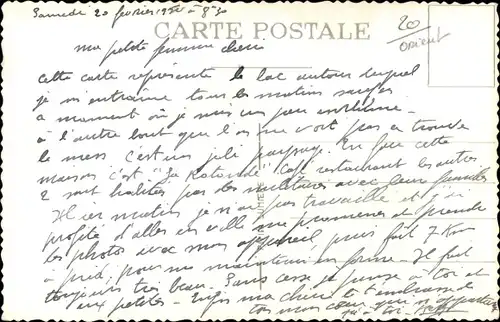 Samedi 20 février 19 à 8h30
CARTE POSTALE
20
ORIENT
ma petite femme chérie
cette carte représente le lac autour duquel
je m'entraîne tous les matins sauf
a moment où je suis un peu
à l'autre bout que l'on ne voit pas se trouve
le mess. c'est un joli paysage. En face cette
maison c'est "La Rotonde" Café restaurant les autres
2 sont habités par des militaires avec leur familles
Hier matin je n'ai pas travaillé et j'ai
profité d'aller en ville me promener et prendre
des photos avec mon appareil, puis fait 7 Km
à pied, pour me maintenir en forme. Il fait
toujours très beau. Sans cesse je pense à toi et
aux petites. Enfin ma chérie je t'embrasse de
tout mon cœur qui n'appartient
qu'à toi.